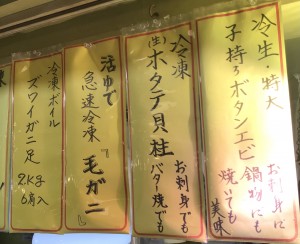 冷生・特大
子持ちボタンエビ
お刺身に
鍋物にも
焼いても
美味
冷凍
(生)ホタテ貝柱
お刺身でも
バター焼でも
活ゆで
急速冷凍
『毛ガニ』
冷凍ボイル
ズワイガニ足
2Kg
6肩入